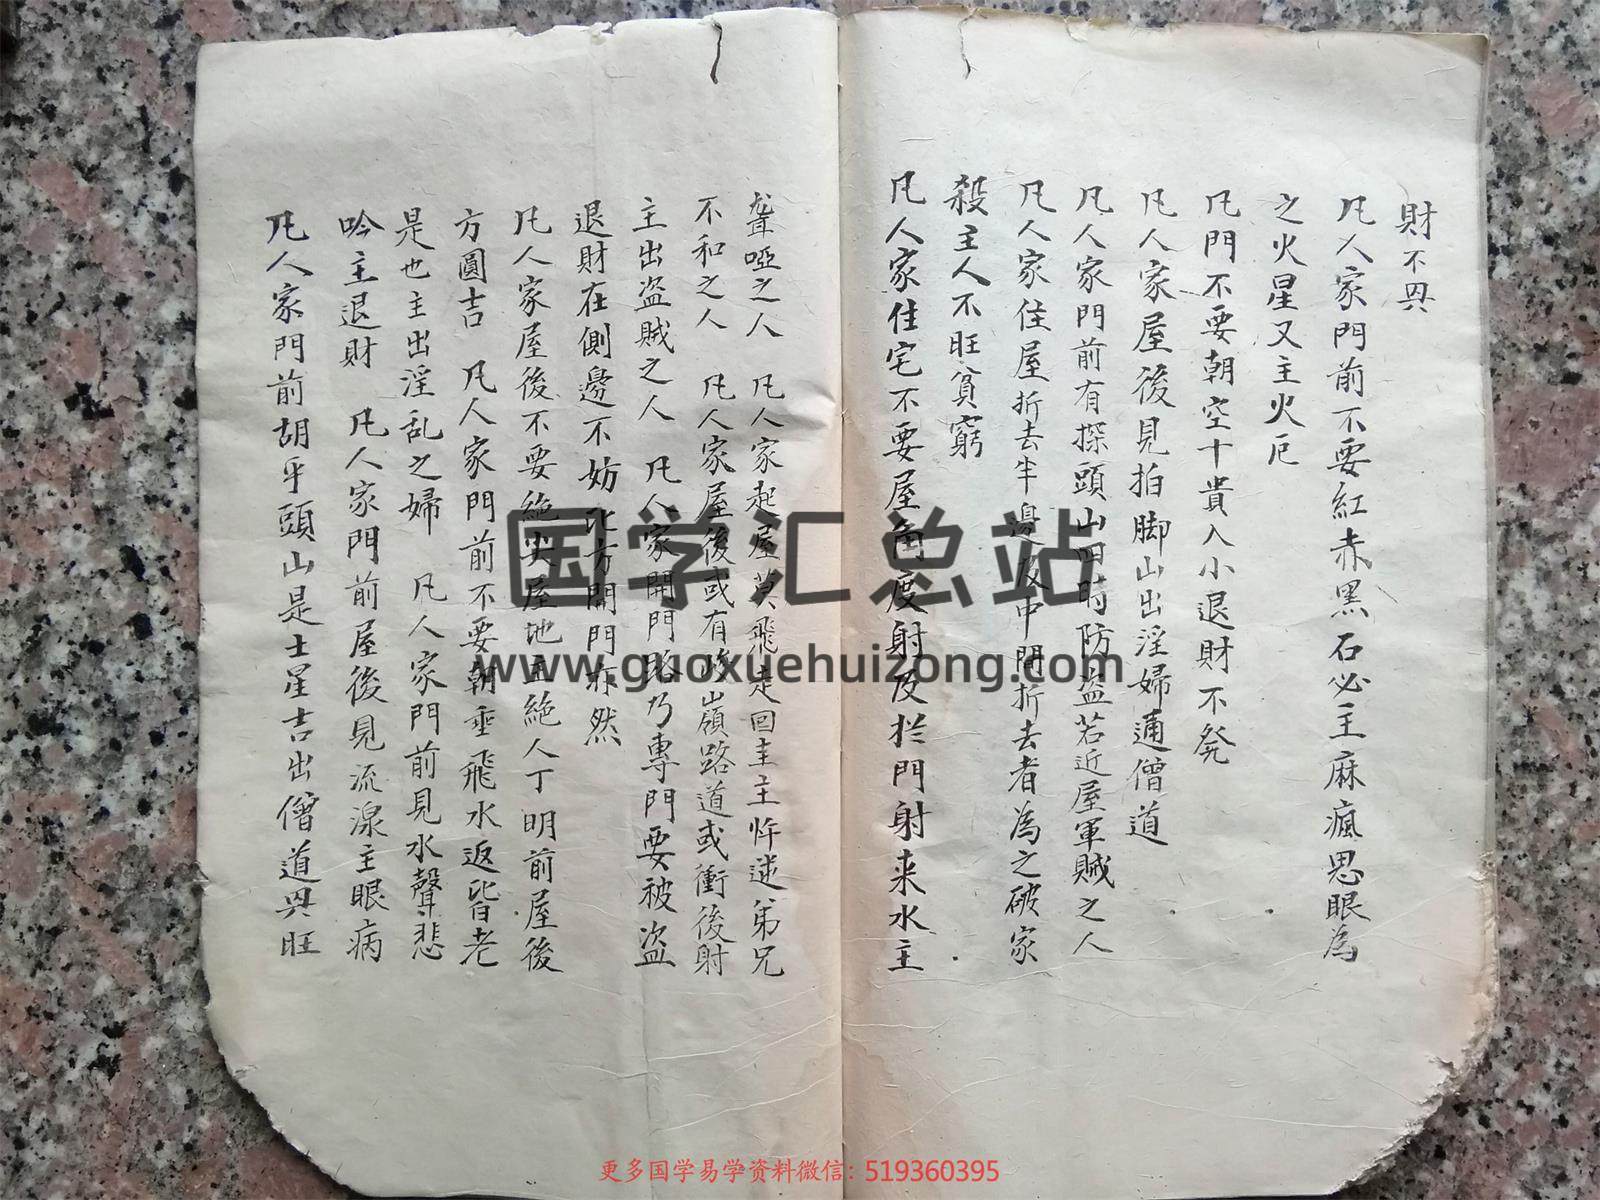 財不興
凡人家門前不要紅赤黑石必主麻瘋思眼為
之火星又主火厄
凡門不要朝空十貴入小退財不発
凡人家屋後見拍脚山出淫婦通僧道
凡人家門前有探頭山門時防盗若近屋軍賊之人
凡人家住屋折去半邊及中間折去者為之破家
殺主人不旺貧窮
凡人家住宅不要屋角度射及拦門射来水主
聾啞之人 凡人家起屋莫飛走回主主忤逆弟兄
不和之人 凡人家屋後或有嶺路道或衝後射
主出盗賊之人 凡人家開門路乃專門要被盗
退財在側邊不妨北方開門亦然
凡人家屋後不要絶尖屋地主絶人丁明前屋後
方圓吉 凡人家門前不要朝垂飛水返皆老
是也主出淫乱之婦 凡人家門前見水聲悲
吟主退財 凡人家門前屋後見流淚主眼病
凡人家門前胡乎頭山是土星吉出僧道興旺
国学汇总站
www.guoxuehuizong.com
更多国学易学资料微信: 519360395